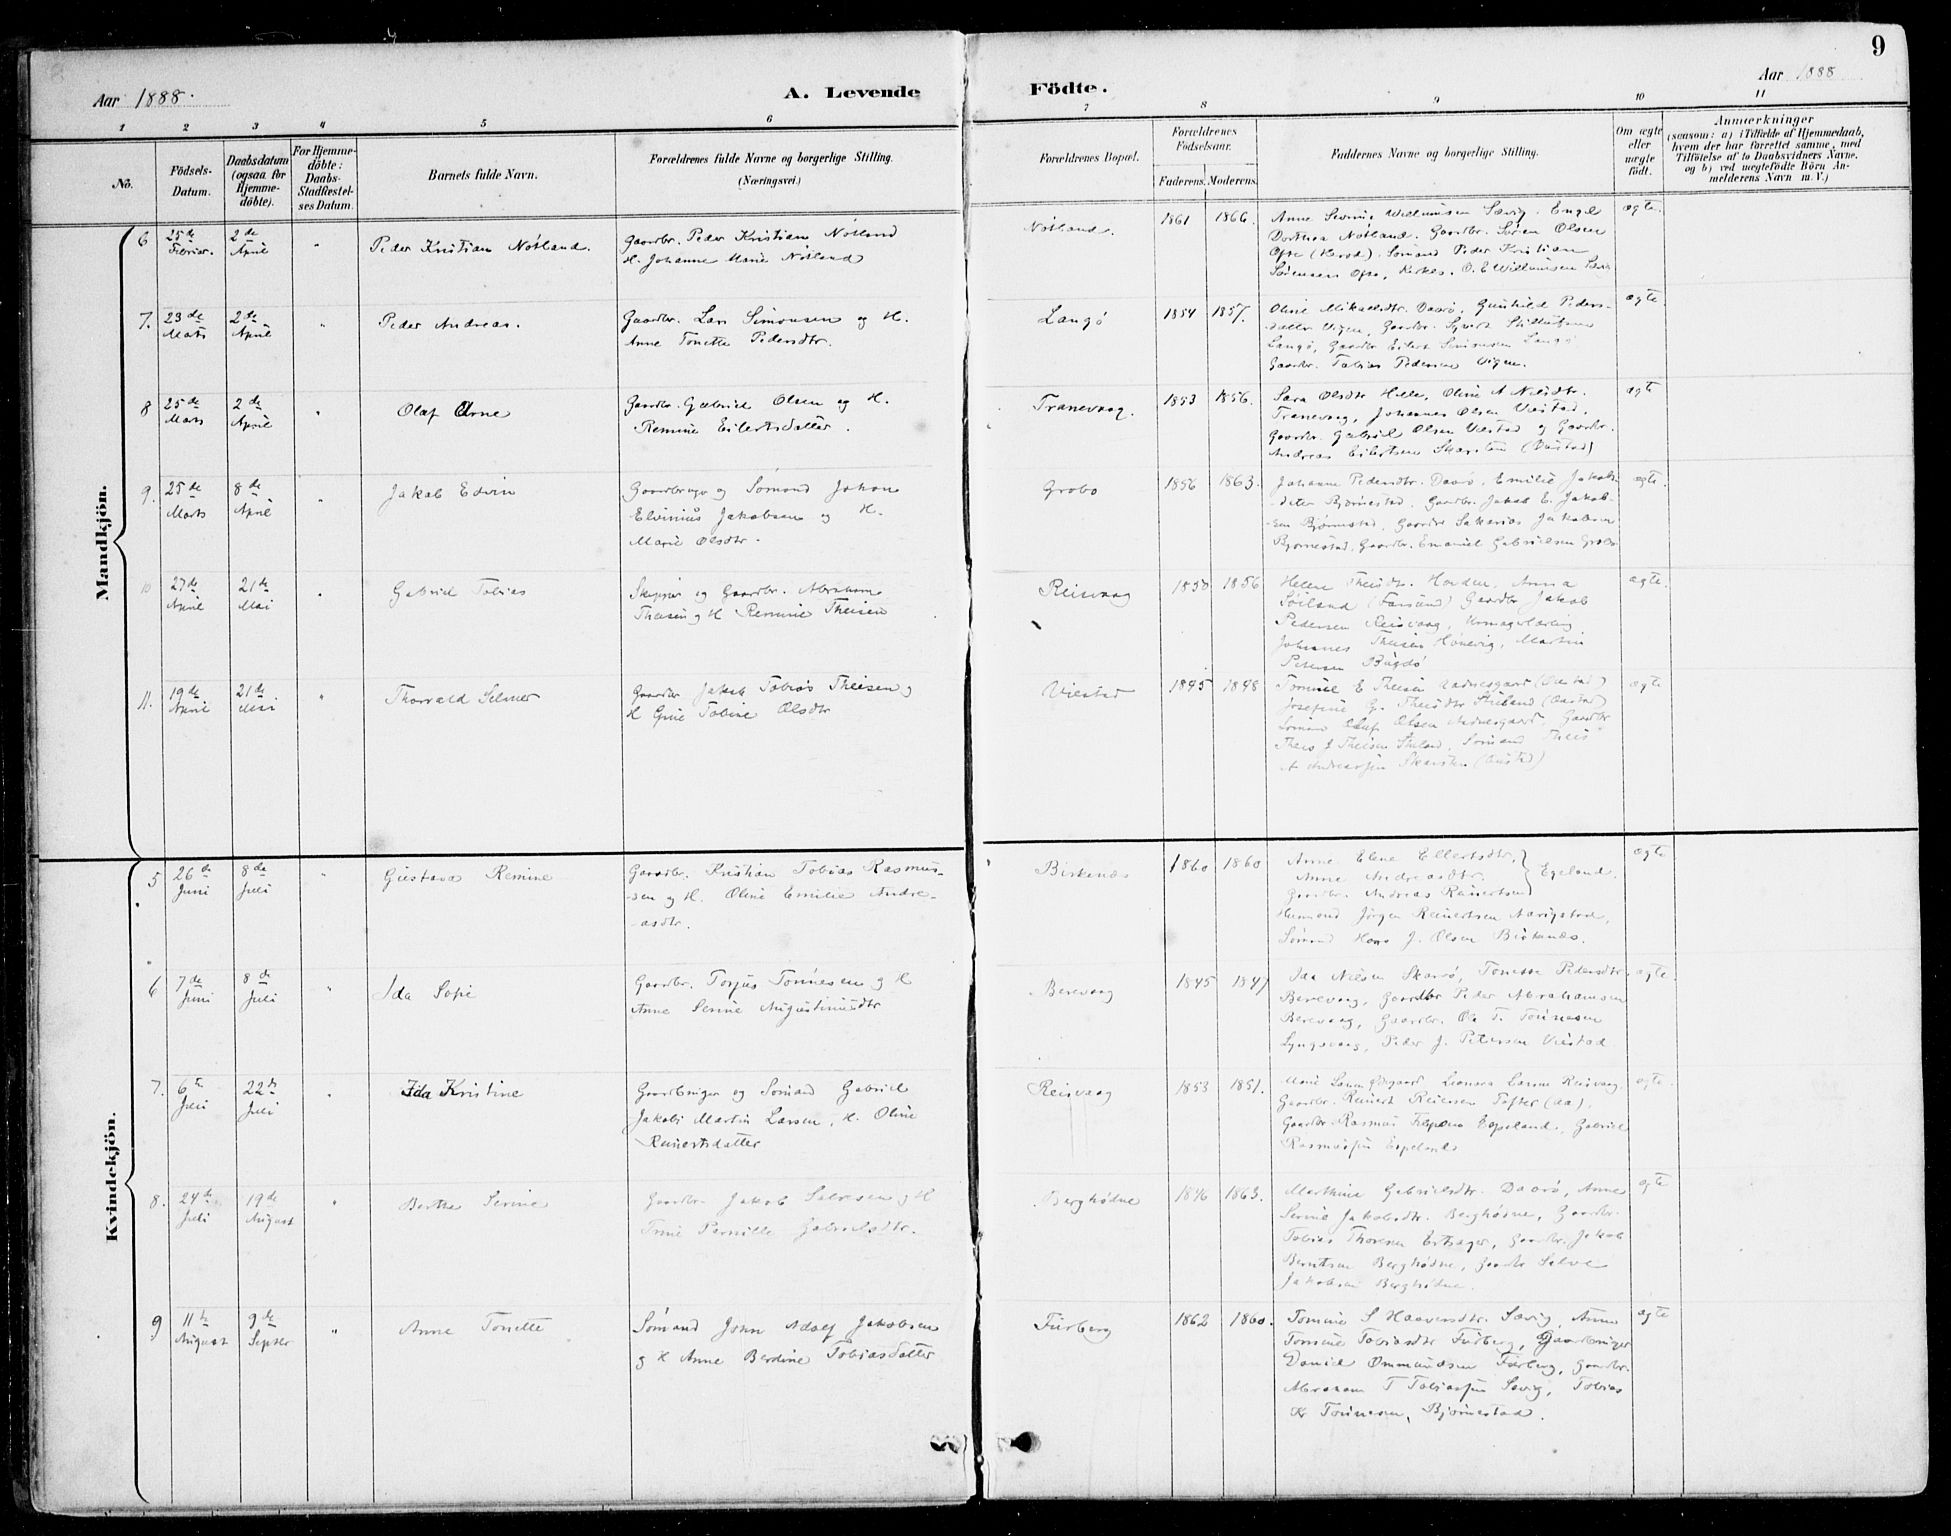 9
Aar 1888.
A. Levende
Födte.
Aar 1888
1 2 3 4 5 6
7 8 9 10 11
No.
Födsels-
Datum.
Daabsdatum
(ogsaa for
Hjemme-
döbte).
For Hjemme-
döbte:
Daabs-
Stadfæstel-
ses Datum.
Barnets fulde Navn.
Forældrenes fulde Navne og borgerlige Stilling.
(Næringsvei.)
Forældrenes Bopæl.
Forældrenes
Födselsaar.
Faderens. Moderens.
Faddernes Navne og borgerlige Stilling.
Om ægte
eller
uægte
födt.
Anmærkninger
(saasom: a) i Tilfælde af Hjemmedaab,
hvem der har forrettet samme, med
Tilföielse af to Daabsvidners Navne.
og b) ved uægtefödte Börn An-
melderens Navn m. V.)
Mandkjön.
6
25de
Februar.
2de
April
"
Peder Kristian Nötland.
Gaardbr. Peder Kristian Nötland
H. Johanne Marie Nötland
Nötland.
1861 1866.
Anne Serine Willumsen Sævig. Engel
Dorthea Nötland. Gaardbr. Sören Olsen
Ofte (Herod). Sömand Peder Kristian
Sörensen Ofte, Kirkes. O. E Willumsen
ægte.
7.
23de
Marts
2de
April
"
Peder Andreas.
Gaardbr. Lars Simonsen og H.
Anne Tonette Pedersdtr.
Langö
1854 1857.
Oline Mikaelsdtr. Daarö, Gunhild Peders-
datter Vigen, Gaardbr.
Langö, Gaardbr Eilert Simonsen Langö
Gaardbr. Tobias Pedersen Vigen.
ægte.
8
25de
Marts
2de
April
"
Olaf Arne
Gaardbr. Gabriel Olsen og H.
Remine Eilertsdatter.
Tranevaag.
1853 1856.
Sara Olsdtr Helle, Oline A Nilsdtr.
Tranevaag, Johannes Olsen Viestad,
Gaardbr. Gabriel Olsen Viestad og Gaardbr.
Andreas Eilertsen Skarsten (Oustad)
ægte
9.
25de
Marts
8de
April
"
Jakob Edvin
Gaardbruger og Sömand Johan
Elvinius Jakobsen og H.
Marie Olsdtr.
Grobo
1856 1863.
Johanne Pedersdtr. Daarö, Emilie Jakobs-
dtr Bjørnestad, Gaardbr. Jakob E. Jakob-
sen Bjørnestad, Gaardbr Sakarias Jakobsen
Bjørnestad, Gaardbr. Emanuel Gabrielsen Grobo
ægte.
10
27de
April
21de
Mai
"
Gabriel Tobias
Skipper og Gaardbr. Abraham
Theisen og H Remine Theisen
Reisvaag
1850 1856
Helene Theisdtr. Hovden, Anna
Söiland (Farsund) Gaardbr Jakob
Pedersen Reisvaag, Urmagerlærling
Johannes Theisen Hönevig, Martin
Petersen Bügdö
ægte.
11.
19de
April
21de
Mai
"
Thorvald Selmer
Gaardbr Jakob Tobias Theisen og
H Gine Tobine Olsdtr
Viestad
1845 1848
Tomine E Theisen Andresgaard (Oustad)
Josefine G. Theisdtr Stuland (Oustad)
Sömand Oluf Olsen Andresgaard, Gaardbr
Theis Theisen Stuland, Sömand Theis
A Andreassen Skarsten (Oustad)
ægte
Kvindekjön.
5
26de
Juni
8de
Juli
"
Gustava Remine
Gaardbr. Kristian Tobias Rasmus-
sen og H. Oline Emilie Andre-
asdtr.
Birkenes
1860 1860
Anne Elene Ellertsdtr,
Anne Andreasdtr. } Egeland.
Gaardbr. Andreas Reinertsen
Husmand Jörgen Reinertsen Narvestad,
Sömand Hans J. Olsen Birkenes.
ægte
6
7de
Juni
8de
Juli
"
Ida Sofie
Gaardbr. Torjus Tönnesen og H
Anne Serine Augustinusdtr
Berevaag
1845 1847
Ida Nilsen Skarö, Tonette Pedersdtr.
Berevaag, Gaardbr Peder Abrahamsen
Berevaag, Gaardbr. Ole T. Tönnesen
Lyngsvaag, Peder J. Petersen Viestad.
ægte.
7.
6te
Juli
22de
Juli
"
Ida Kristine
Gaardbruger og Sömand Gabriel
Jakob Martin Larsen, H. Oline
Reinertsdatter
Reisvaag
1853 1851.
Marie Larsen Leonora Larsen Reisvaag.
Gaardbr. Reinert Reiersen Tofter (Aa),
Gaardbr. Rasmus Espeland, Gabriel
Rasmussen Espeland
ægte.
8.
24de
Juli
19de
August
"
Berthe Serine
Gaardbr. Jakob Salvesen og H
Trine Pernille Gabrielsdtr.
Berghödne
1846 1863.
Marthine Gabrielsdtr. Daarö, Anne
Serine Jakobsdtr. Berghödne, Gaardbr.
Tobias Thorsen Ersager, Gaardbr. Jakob
Berntsen Berghödne, Gaardbr Salve
Jakobsen Berghödne.
ægte
9
11te
August
9de
Septbr
"
Anne Tonette
Sömand John Adolf Jakobsen
og H Anne Berdine Tobiasdatter
Furberg
1862 1860.
Tomine S Haaversdtr. Sævig, Anne
Tomine Tobiasdtr Furberg, Gaardbruger
Daniel Ommundsen Furberg, Gaardbr.
Abraham T Tobiassen Sævig, Tobias
Kr Tönnesen, Bjørnestad.
ægte